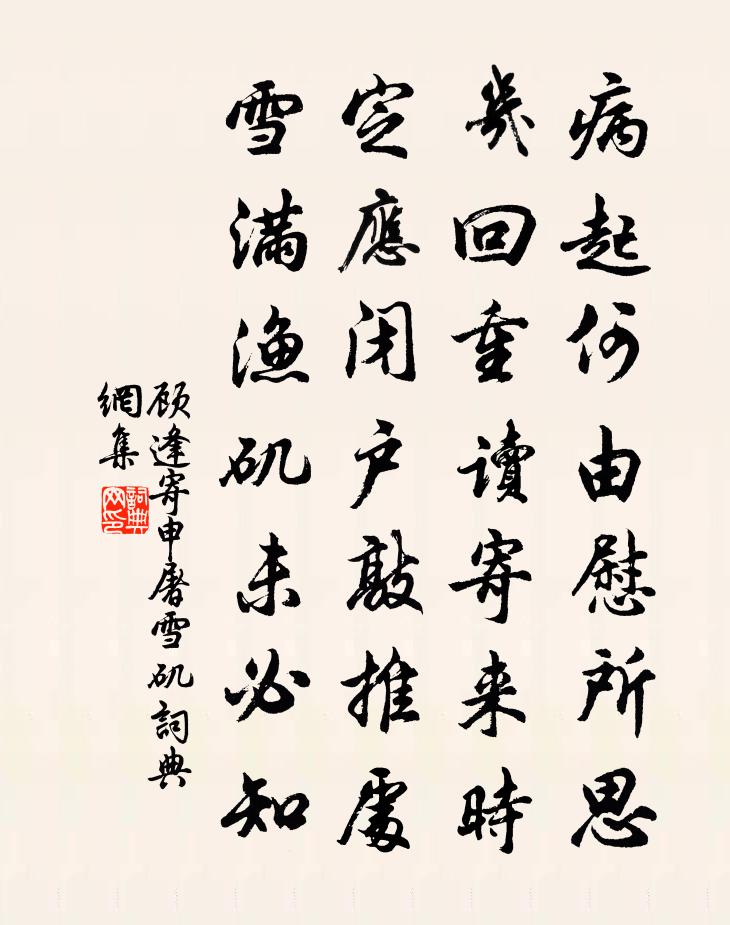 病起何由慰所思
幾回重讀寄来時
定應闭户敲推處
雪滿漁矶未必知
顾逢寄申屠雪矶詞典
網集
詞典网印